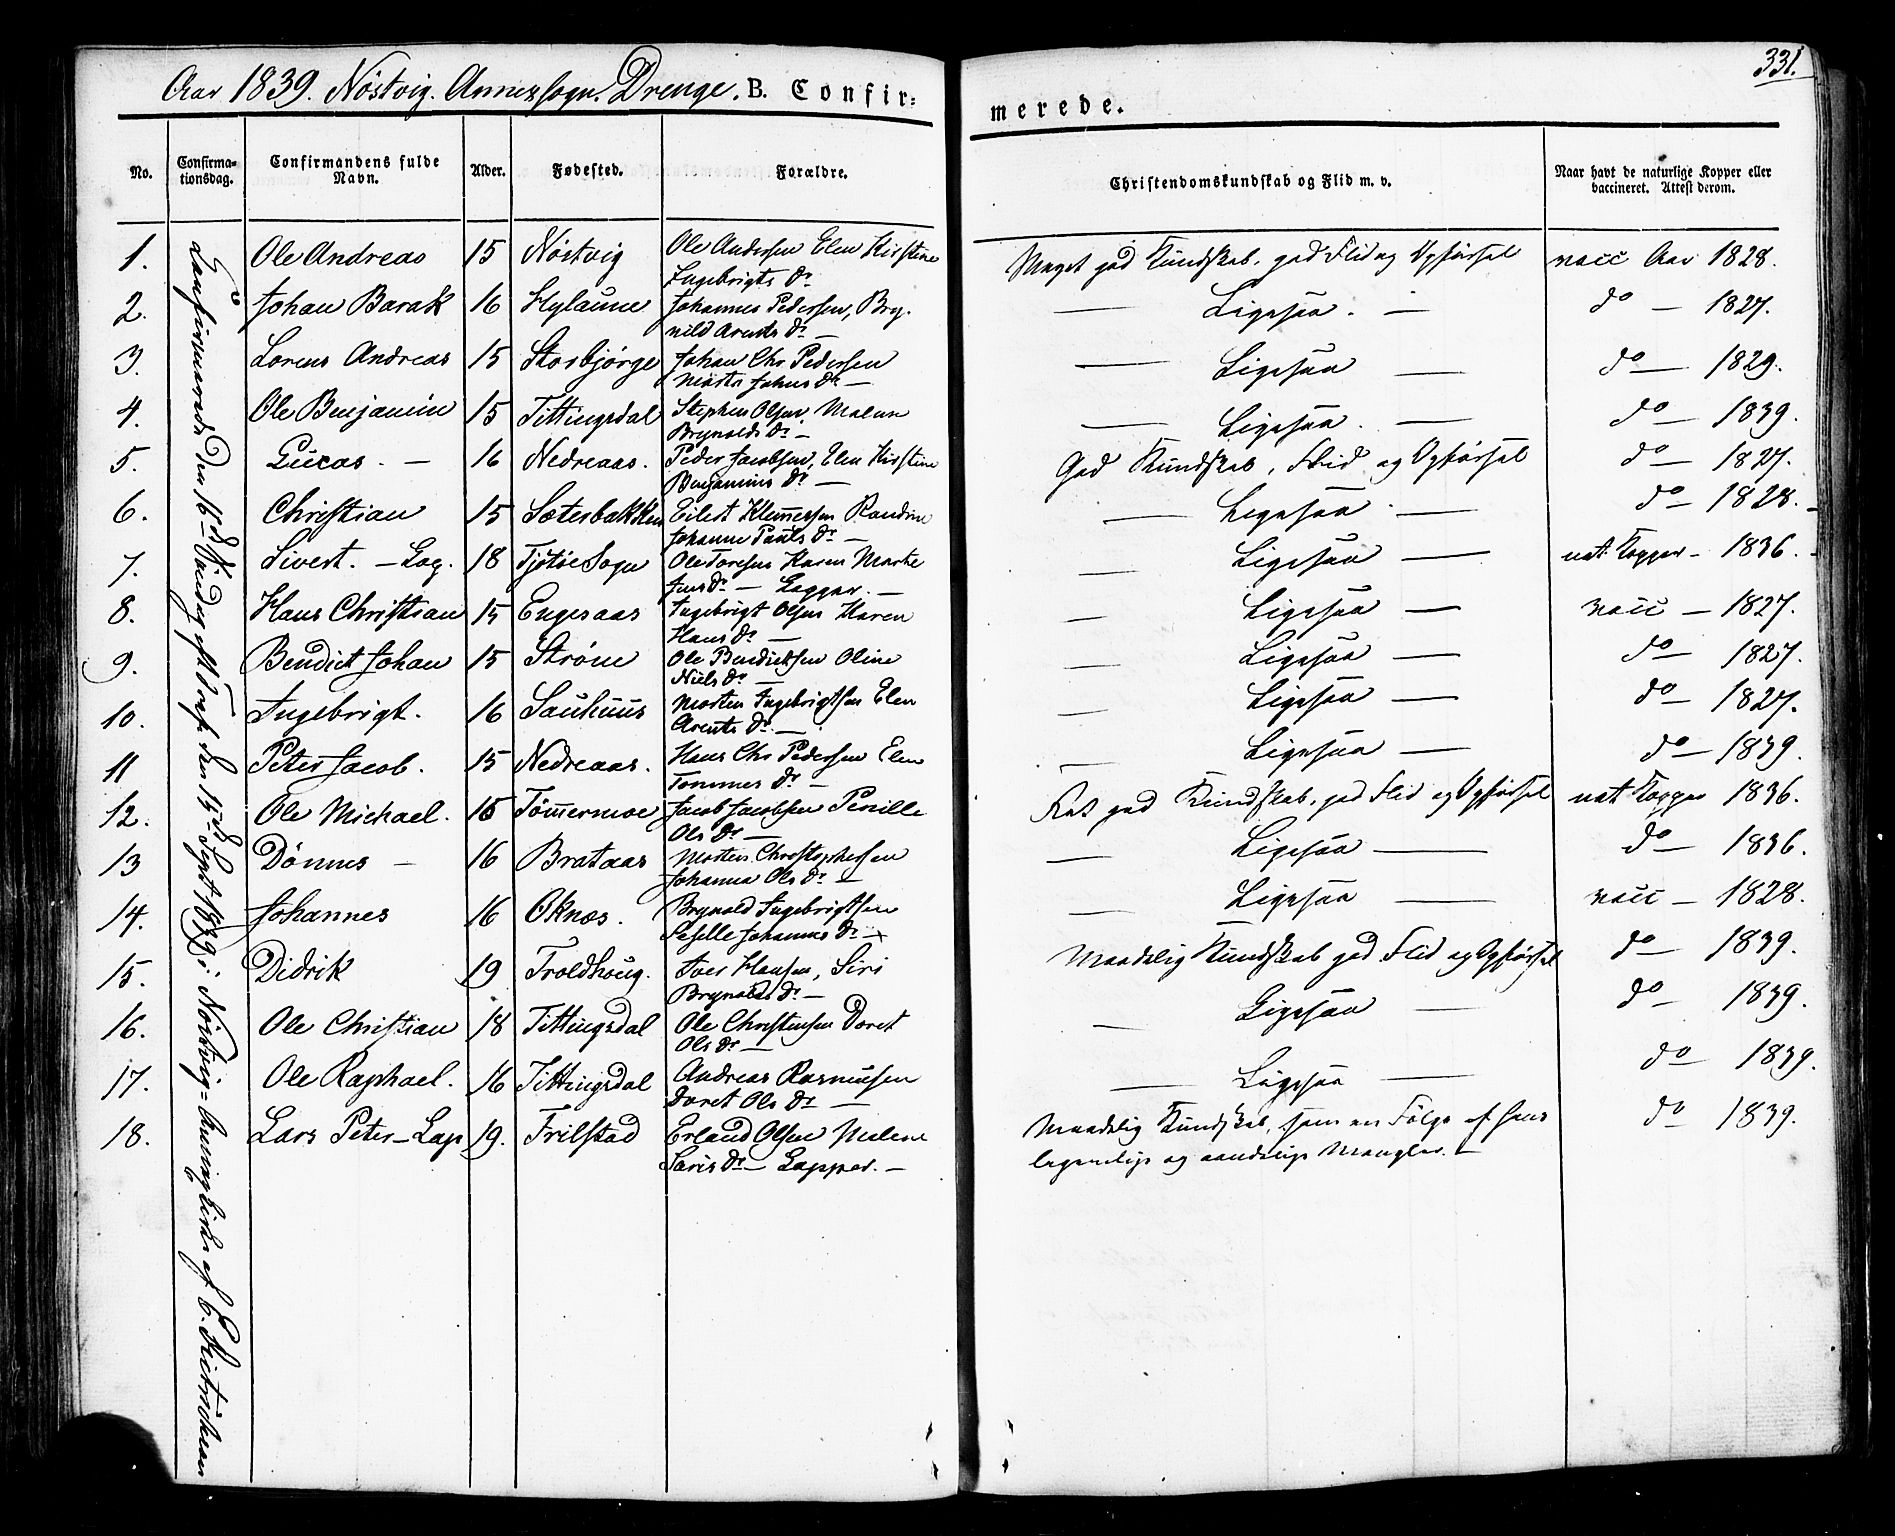 331.
Aar 1839. Nöstvig. Annexsogn. Drenge. B. Confir=
merede.
No. Confirma-tionsdag. Confirmandens fulde Navn. Alder. Fødested. Forældre. Christendomskundskab og Flid m. v. Naar havt de naturlige Kopper eller vaccineret. Attest derom.
1. Ole Andreas 15 Nöstvig Ole Andersen Elen Kirstine Meget god Kundskab. god Flid og Opførsel vacc Aar 1828.
Ingebrigts Dr
2. Johan Barak 16 Hylaune Johannes Pedersen, Bry- — Ligesaa. — do — 1827.
nild Arents Dr —
3. Lorens Andreas 15 Storbjørge Johan Chr Pedersen — Ligesaa — do — 1829.
Märta Johns Dr —
4. Ole Benjamin 15 Tittingsdal Stephen Olsen Malene — Ligesaa. — do — 1839.
Brynolds Dr —
5. Lucas. — 16 Nedreaas. Peder Jacobsen, Elen Kirstine God Kundskab, Flid og Opførsel do — 1827.
Benjamins Dr —
6. Christian 15 Sæterbakken Eilert Klemetsen Randine — Ligesaa — do — 1828.
Johanne Pauls Dr —
7. Sivert. — Lap. 18 Tjötöe Sogn Ole Toresen Karen Marthe — Ligesaa — nat: Kopper — 1836.
Jens Dr — Lapper. —
8. Hans Christian 15 Engesaas Ingebrigt Olsen Karen — Ligesaa — vacc — 1827.
Hans Dr —
9. Bendict Johan 15 Strøm Ole Bendicksen Oline — Ligesaa — do — 1827.
Niels Dr —
10. Ingebrigt. 16 Sauhuus Morten Ingebrigtsen Elen — Ligesaa — do — 1827.
Arents Dr —
11 Peter Jacob. 15 Nedreaas. Hans Chr Pedersen Elen — Ligesaa — do — 1839.
Tommes Dr —
12. Ole Michael. 16 Tömmermoe Jacob Jacobsen Pernille Ret god Kundskab, god Flid og Opførsel nat Kopper 1836.
Ols Dr —
13 Dönnes — 16 Brataas Morten Christophersen — Ligesaa — do — 1836.
Johanna Ols Dr —
14. Johannes 16 Oknæs. Brynold Ingebrigtsen — Ligesaa — vacc — 1828.
Seselle Johannes Dr —
15. Didrik 19 Troldhoug. Iver Hansen, Siri Maadelig Kundskab god Flid og Opførsel do — 1839.
Brynolds Dr —
16. Ole Christian 18 Tittingsdal Ole Christensen Doret — Ligesaa — do — 1839.
Ols Dr —
17. Ole Raphael. 16 Tittingsdal Andreas Rasmusen — Ligesaa — do — 1839.
Doret Ols Dr —
18. Lars Peter — Lap 19. Frilstad Erland Olsen Malene Maadelig Kundskab, som en Følge af hans do — 1839.
Saris Dr — Lapper. — legemlige og aandelige Mangler. —
Confirmerede den 16de Söndag efter Tref: den 15de Sept 1839 i Nöstvig= Annexkirke af C.